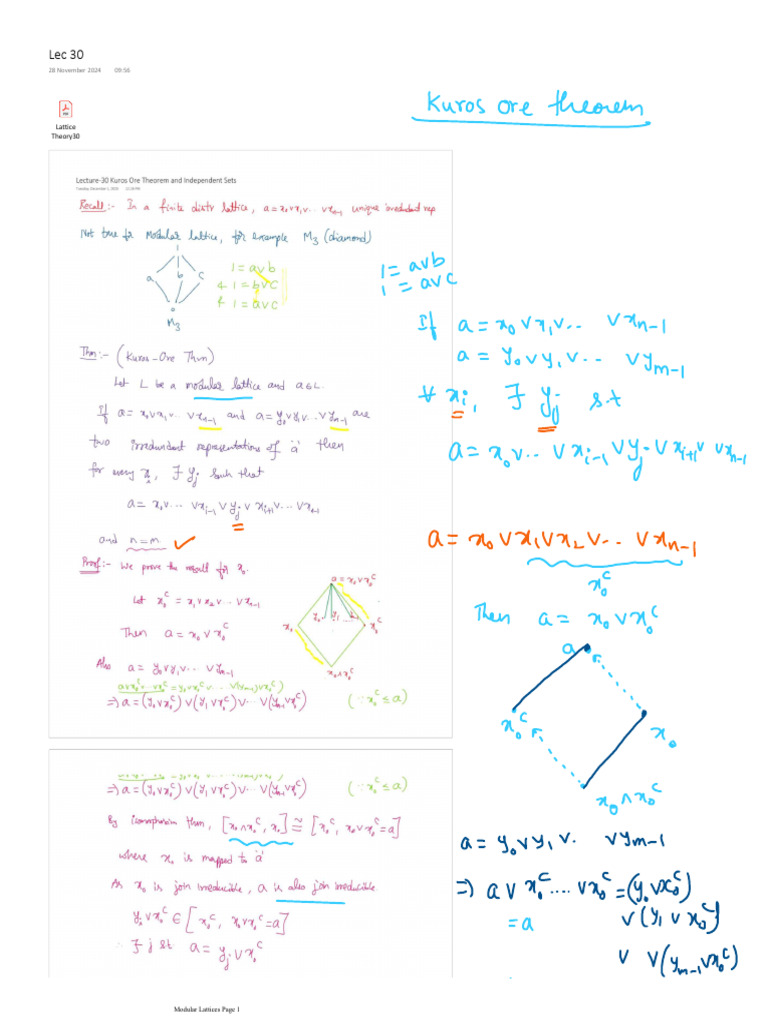 Lec 30
28 November 2024 09:56
Kuros ore theorem
Lattice
Theory30
Lecture-30 Kuros Ore Theorem and Independent Sets
Recall:- In a finite distr lattice, a = x₀∨x₁∨... ∨xₙ₋₁ unique irredundant rep
Not true for Modular lattice, for example M₃ (diamond)
1
a b c
0
M₃
1 = a∨b
& 1 = b∨c
& 1 = a∨c
1 = a∨b
1 = a∨c
If a = x₀∨x₁∨... ∨xₙ₋₁
a = y₀∨y₁∨... ∨yₘ₋₁
∀ xᵢ, ∃ yⱼ s.t
a = x₀∨... ∨xᵢ₋₁∨yⱼ∨xᵢ₊₁∨ ∨xₙ₋₁
Thm:- (Kuros-Ore Thm)
Let L be a modular lattice and a∈L.
If a = x₀∨x₁∨... ∨xₙ₋₁ and a = y₀∨y₁∨...∨yₘ₋₁ are
two irredundant representations of 'a' then
for every xᵢ, ∃ yⱼ such that
a = x₀∨... ∨xᵢ₋₁∨yⱼ∨xᵢ₊₁∨...∨xₙ₋₁
and n=m.
a = x₀∨x₁∨x₂∨... ∨xₙ₋₁
x₀ᶜ
Then a = x₀∨x₀ᶜ
Proof:- We prove the result for x₀
Let x₀ᶜ = x₁∨x₂∨...∨xₙ₋₁
Then a = x₀∨x₀ᶜ
Also a = y₀∨y₁∨...∨yₘ₋₁
a∨x₀ᶜ...∨x₀ᶜ = y₀∨x₀ᶜ∨...∨(yₘ₋₁∨x₀ᶜ)
⇒ a = (y₀∨x₀ᶜ)∨(y₁∨x₀ᶜ)∨...∨(yₘ₋₁∨x₀ᶜ) (∵ x₀ᶜ ≤ a)
a = x₀∨x₀ᶜ
x₀ x₀ᶜ
x₀∧x₀ᶜ
a
x₀ᶜ x₀
x₀∧x₀ᶜ
⇒ a = (y₀∨x₀ᶜ)∨(y₁∨x₀ᶜ)∨...∨(yₘ₋₁∨x₀ᶜ) (∵ x₀ᶜ ≤ a)
By isomorphism thm, [x₀∧x₀ᶜ, x₀] ≅ [x₀ᶜ, x₀∨x₀ᶜ = a]
where x₀ is mapped to 'a'
As x₀ is join irreducible, a is also join irreducible
yⱼ∨x₀ᶜ ∈ [x₀ᶜ, x₀∨x₀ᶜ = a]
∴ ∃ j st a = yⱼ∨x₀ᶜ
a = y₀∨y₁∨. ∨yₘ₋₁
⇒ a∨x₀ᶜ....∨x₀ᶜ = (y₀∨x₀ᶜ)
= a ∨(y₁∨x₀ᶜ)
∨ ∨(yₘ₋₁∨x₀ᶜ)
Modular Lattices Page 1